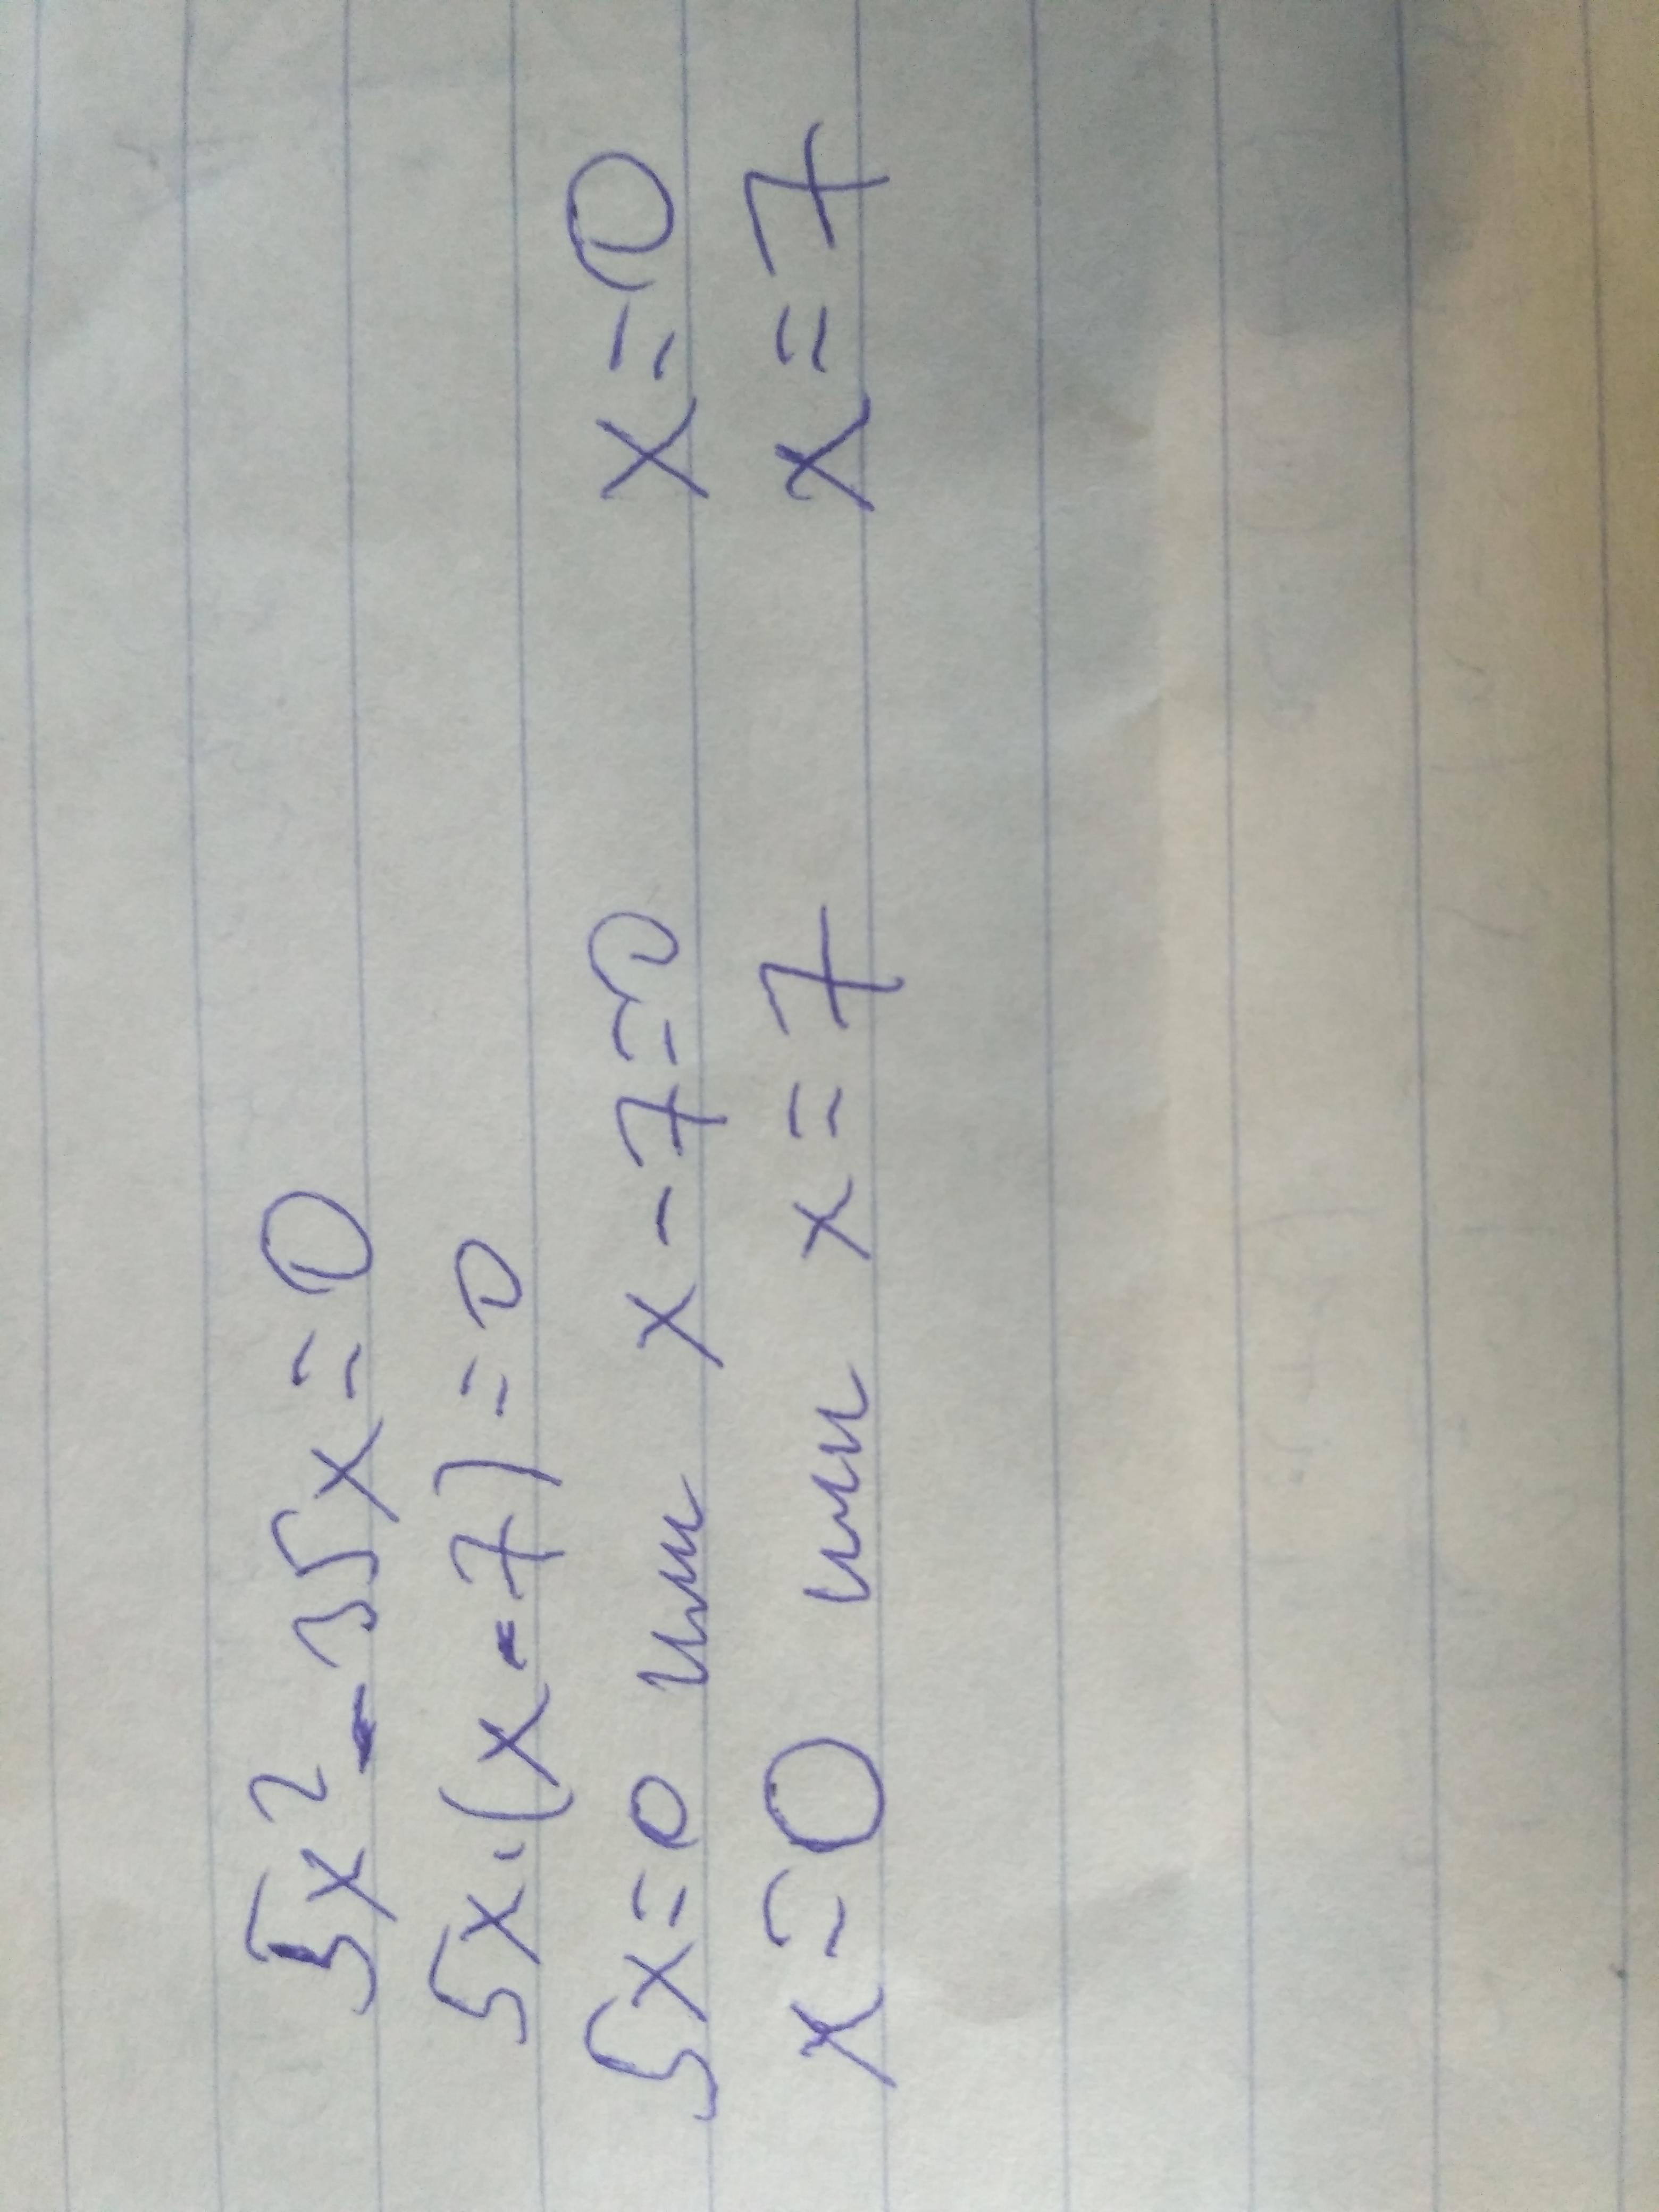 5x² - 35x = 0
5x·(x - 7) = 0
5x = 0 или x - 7 = 0 x = 0
x = 0 или x = 7 x = 7